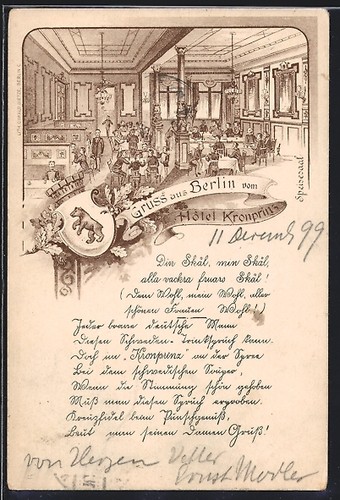 Gruss aus Berlin vom
Hôtel Kronprinz
Speisesaal
11 Decemb 99
Din Skål, min Skål,
alla vackra Skål!
(Dein Wohl, mein Wohl, aller
schönen Frauen Wohl!)
Jeder brave deutsche Mann
Diesen Schweden-Trinkspruch kann.
Doch im „Kronprinz" an der Spree
Bei dem schwedischen
Wenn die Stimmung schön gehoben
Muß man diesen Spruch erproben.
Kreuzfidel beim Punschgenuß,
Beut man seinen Damen Gruß!
von Herzen Vetter
Ernst